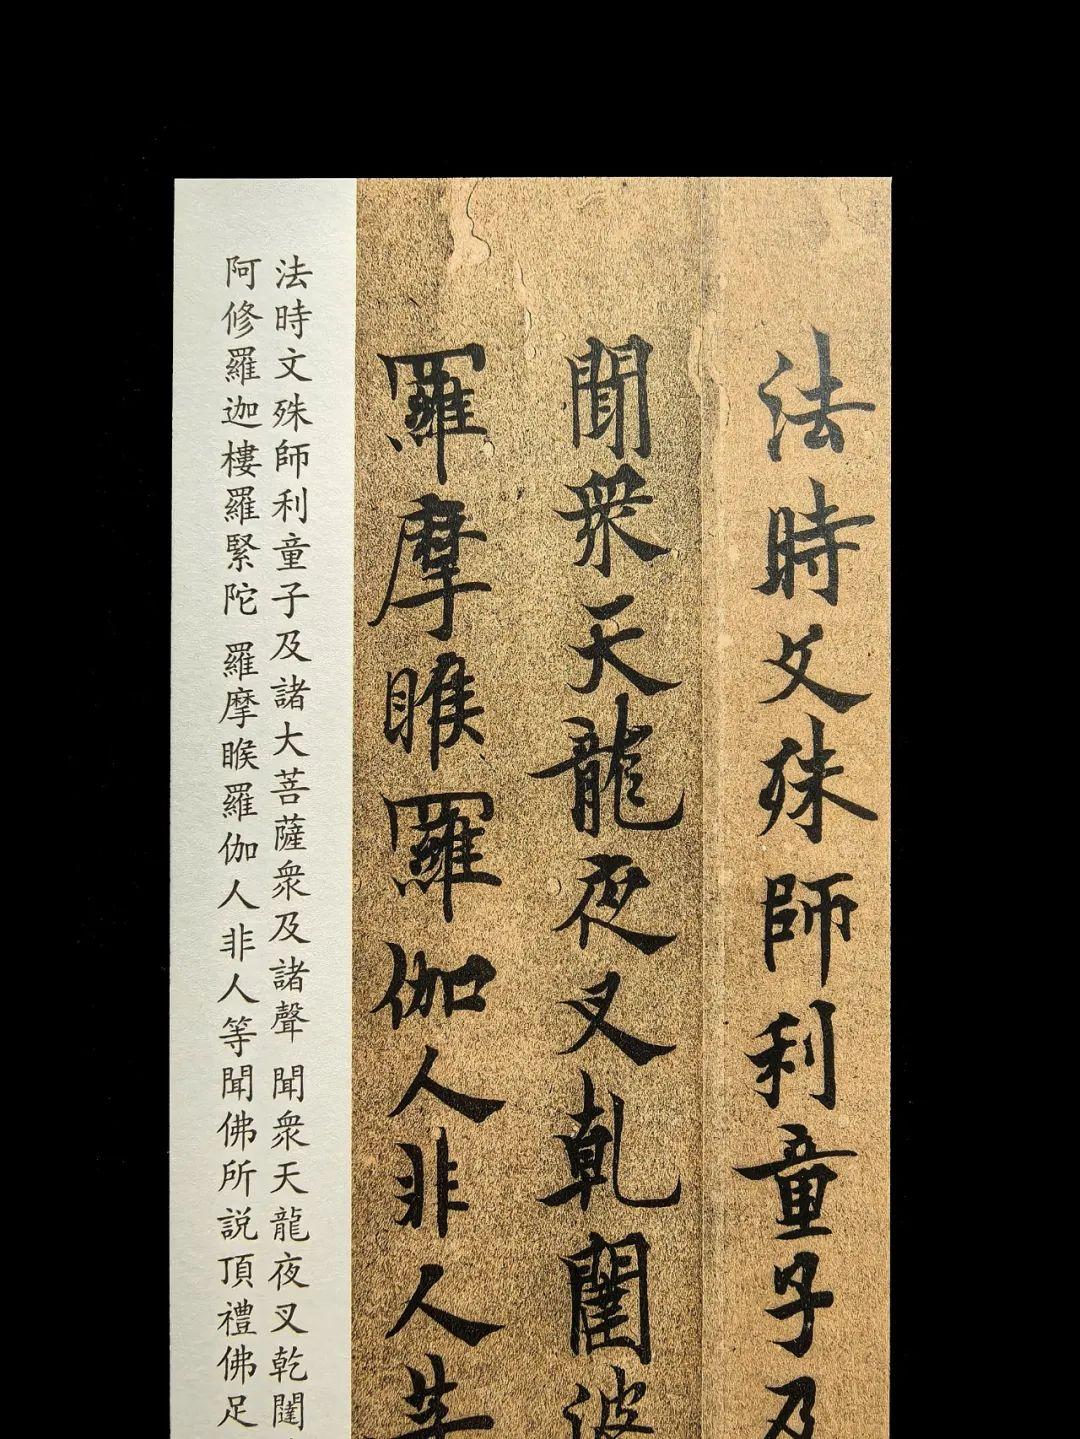 法時文殊師利童子及
聞衆天龍夜叉乾闥波
羅摩睺羅伽人非人等
法時文殊師利童子及諸大菩薩衆及諸聲 聞衆天龍夜叉乾闥
阿修羅迦樓羅緊陀 羅摩睺羅伽人非人等聞佛所説頂禮佛足